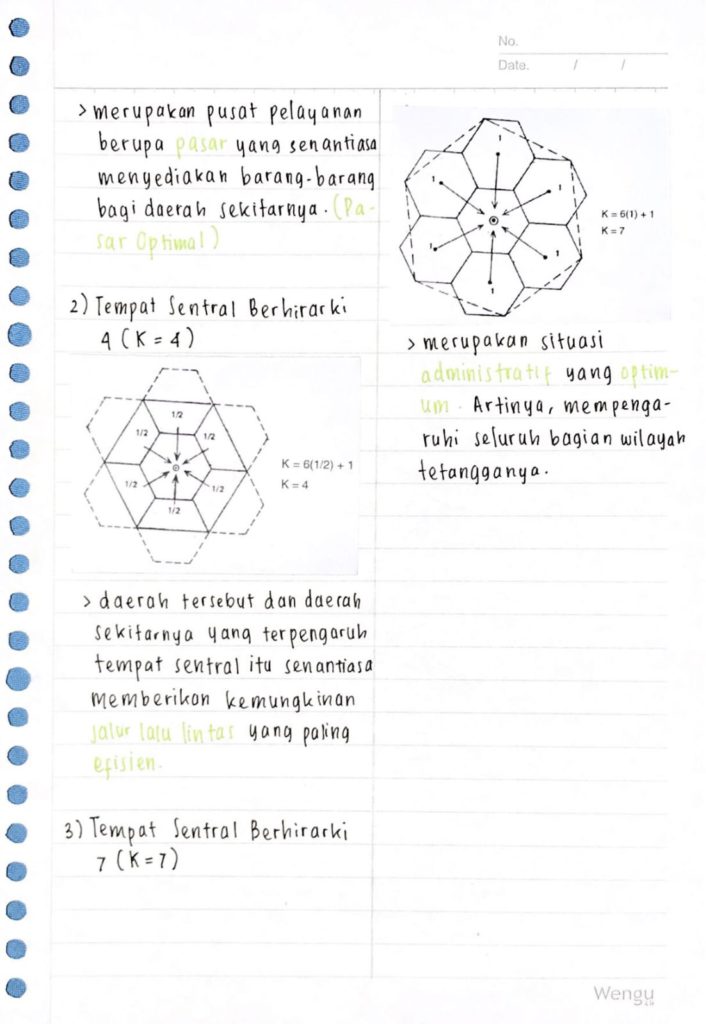 No.
Date. / /
> merupakan pusat pelayanan
berupa pasar yang senantiasa
menyediakan barang-barang
bagi daerah sekitarnya. (Pa-
sar Optimal)
2) Tempat Sentral Berhirarki
4 (K = 4)
1/2
1/2
1/2
1/2
1/2
1/2
K = 6(1/2) + 1
K = 4
> daerah tersebut dan daerah
sekitarnya yang terpengaruh
tempat sentral itu senantiasa
memberikan kemungkinan
jalur lalu lintas yang paling
efisien.
3) Tempat Sentral Berhirarki
7 (K = 7)
1
1
1
1
1
1
K = 6(1) + 1
K = 7
> merupakan situasi
administratif yang optim-
um. Artinya, mempenga-
ruhi seluruh bagian wilayah
tetangganya.
Wengu